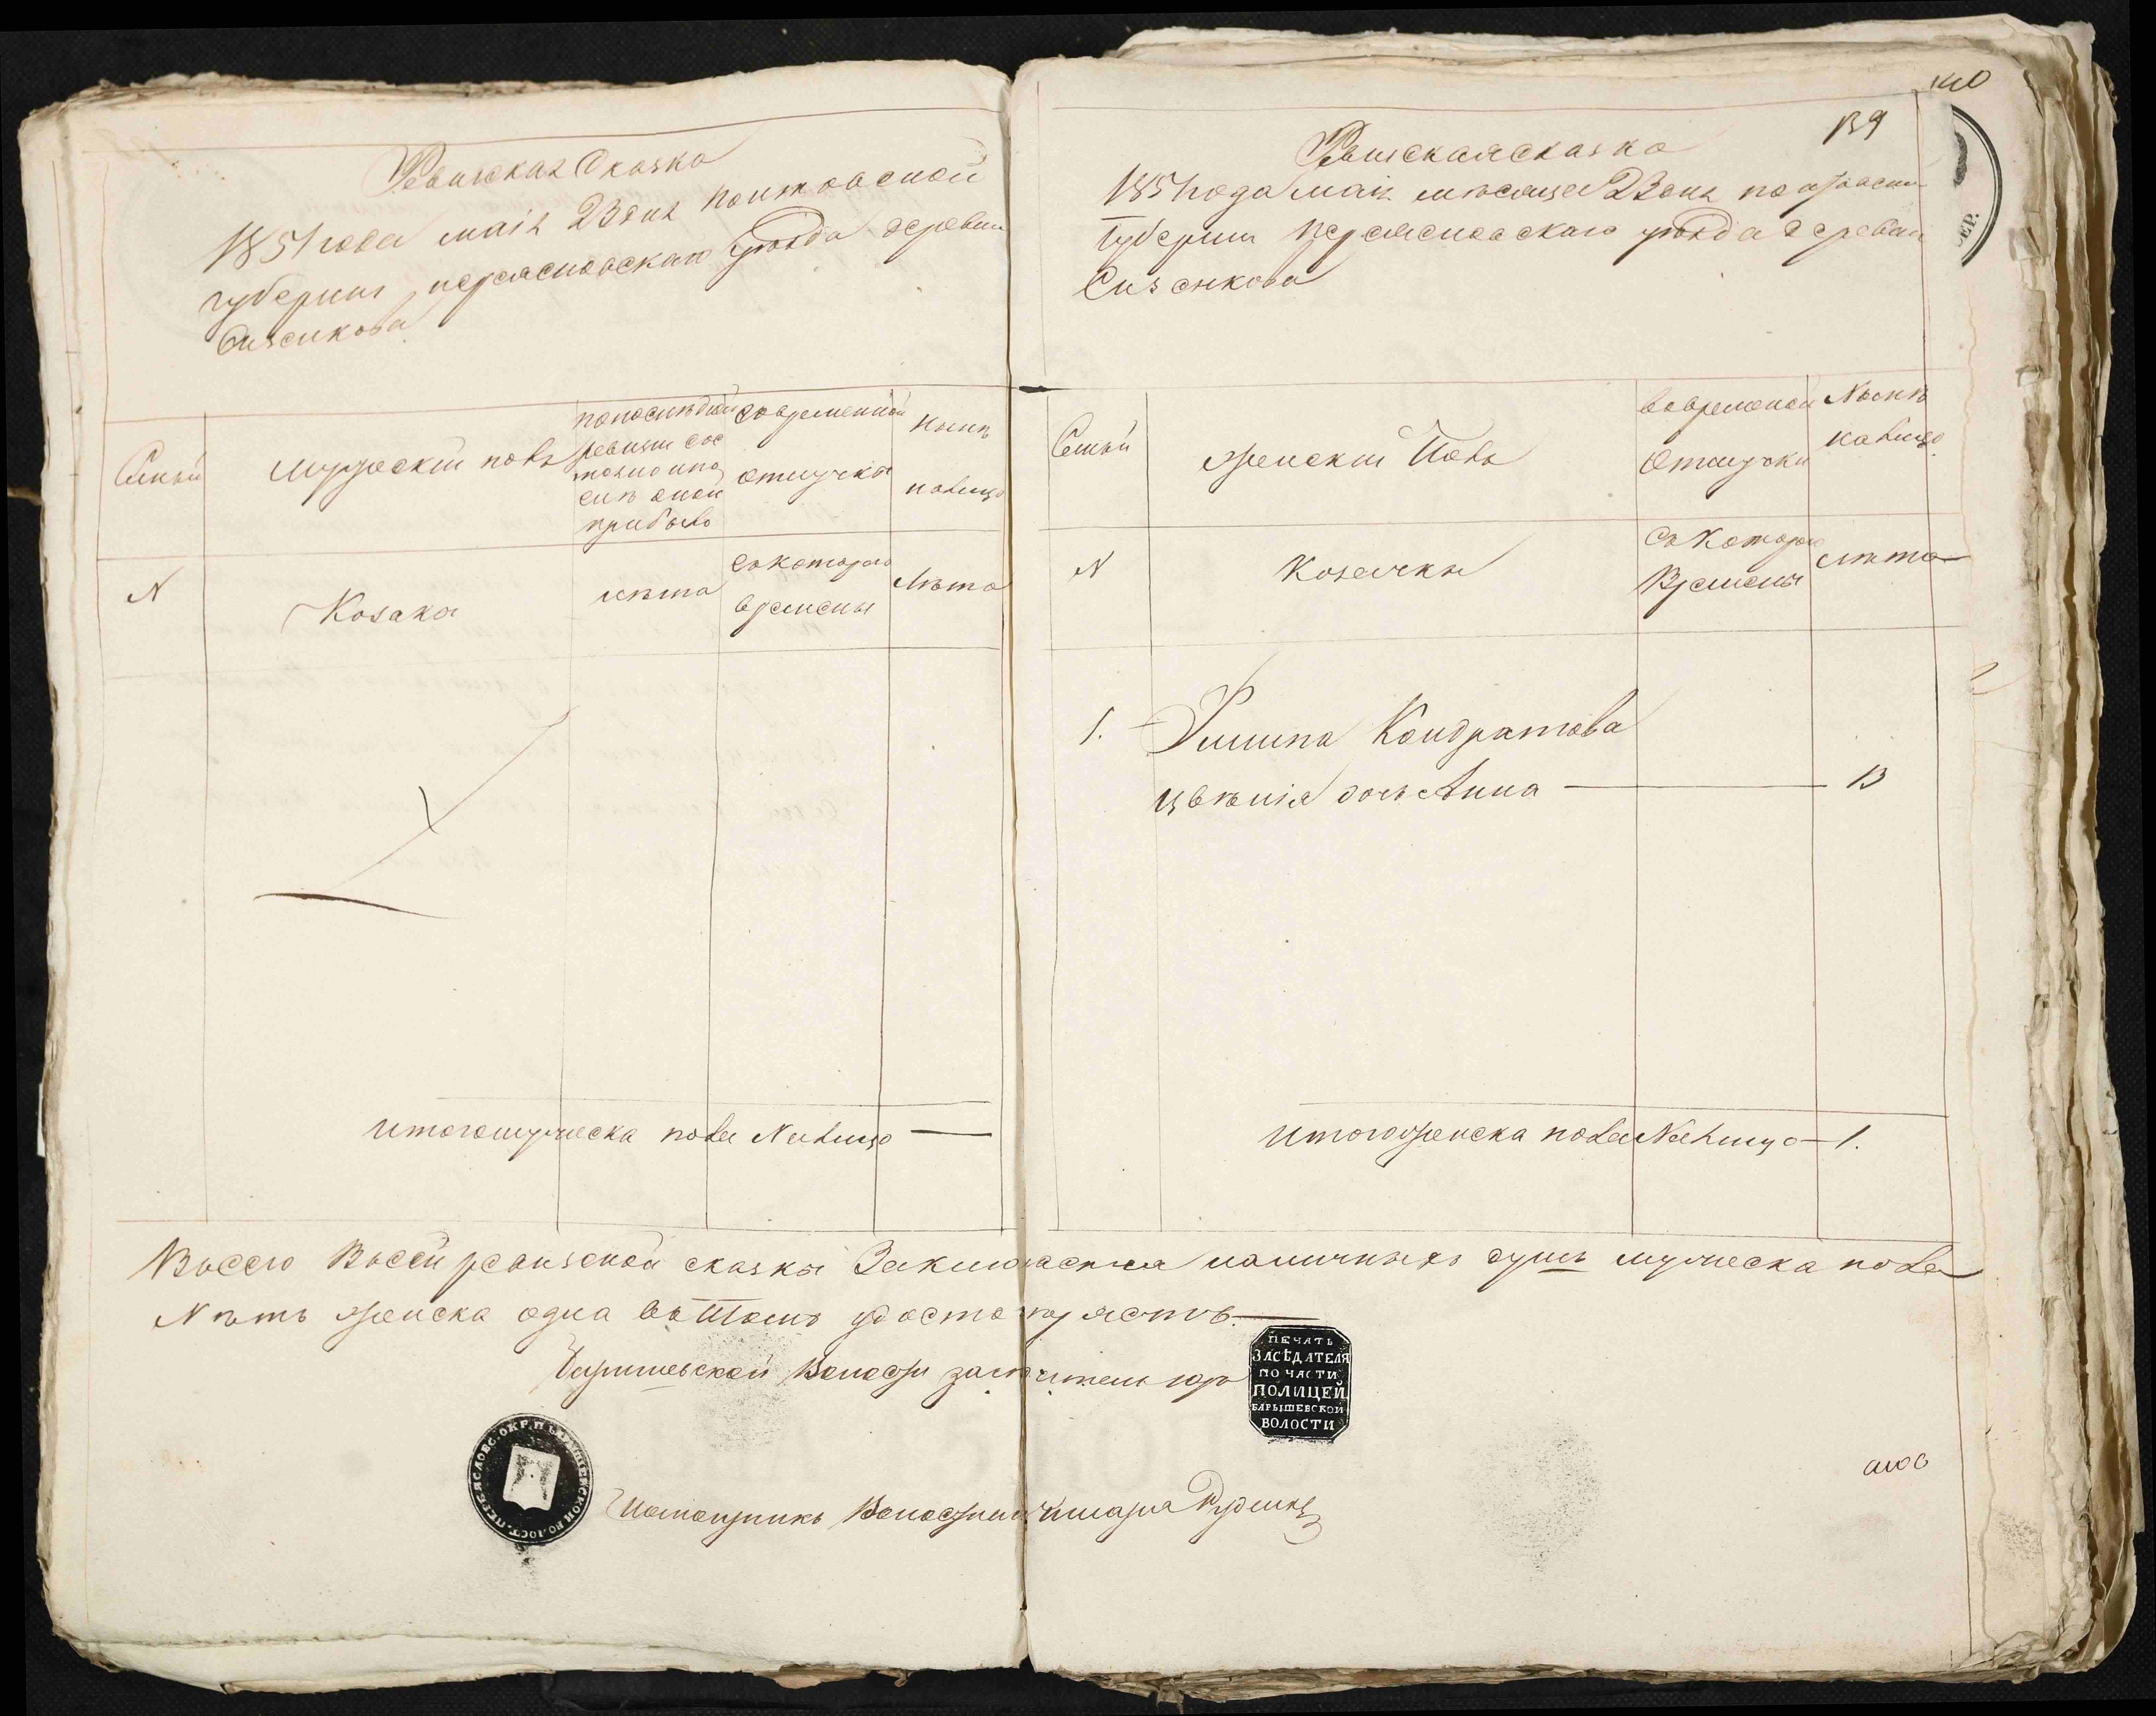 Ревизская Сказка
1851 года маія 23 дня полтавской
губерніи переяславскаго уѣзда деревни
Сизенкова
Семьи
мужескій полъ
попослѣдней
ревизіи сос
тояло ипо
слѣ оной
прибыло
вовременной
отлучки
Нынѣ
налицо
N
Козаки
лѣта
съкотораго
времены
Лѣта
итого мужеска пола Налицо —
140
139
Ревизская сказка
1851 года маія месяца 23 дня полтавской
Губерніи Переяславскаго уѣзда деревни
Сизенкова
Семьи
женскій Полъ
вовременной
Отлучки
Нынѣ
налицо
N
Козачки
Съ Котораго
Времены
лѣта
1. Кондратова
дочь Анна — 13
Итого женска пола Налицо — 1.
Всего Въсей ревизской сказки Заключается наличныхъ душъ мужеска пола
Нѣтъ женска одна вътомъ удостоверяетъ —
Волости
ПЕЧАТЬ
ЗАСѢДАТЕЛЯ
ПО ЧАСТИ
ПОЛИЦЕЙ
БАРЫШЕВСКОЙ
ВОЛОСТИ
ПЕРЕЯСЛОВС. ОКР. БАРЫШЕВСКОЙ ВОЛОСТ.
Волостнаго Писаря Руденко